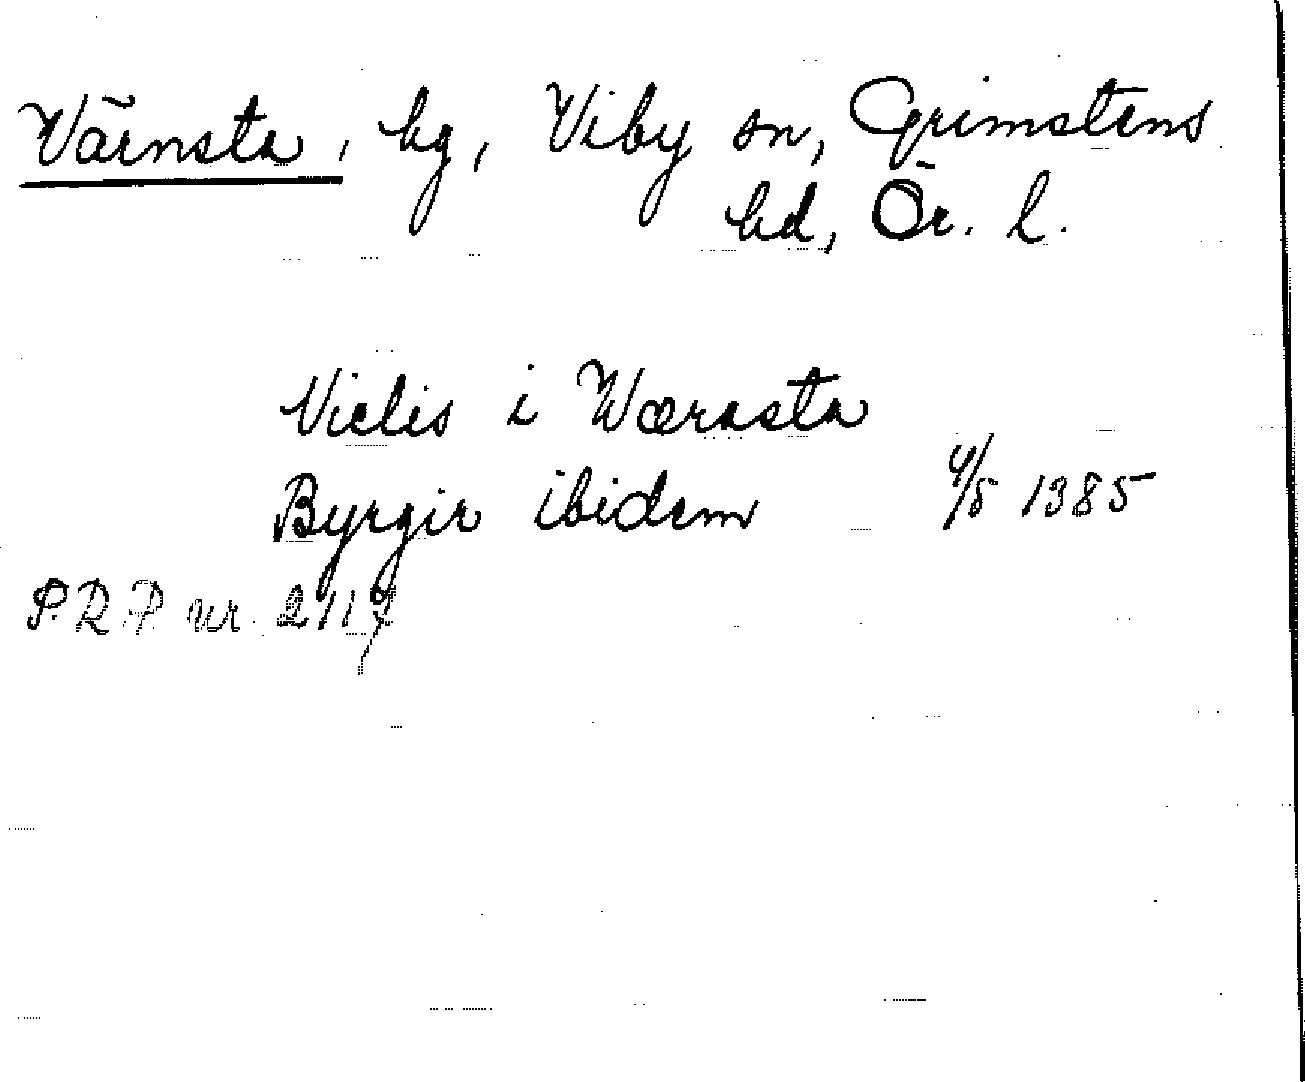 Värnsta, hg, Viby sn, Grimstens
hd, Ör. l.
Niclis i Wærasta
Byrgir ibidem 4/5 1385
P.R.P nr. 2117